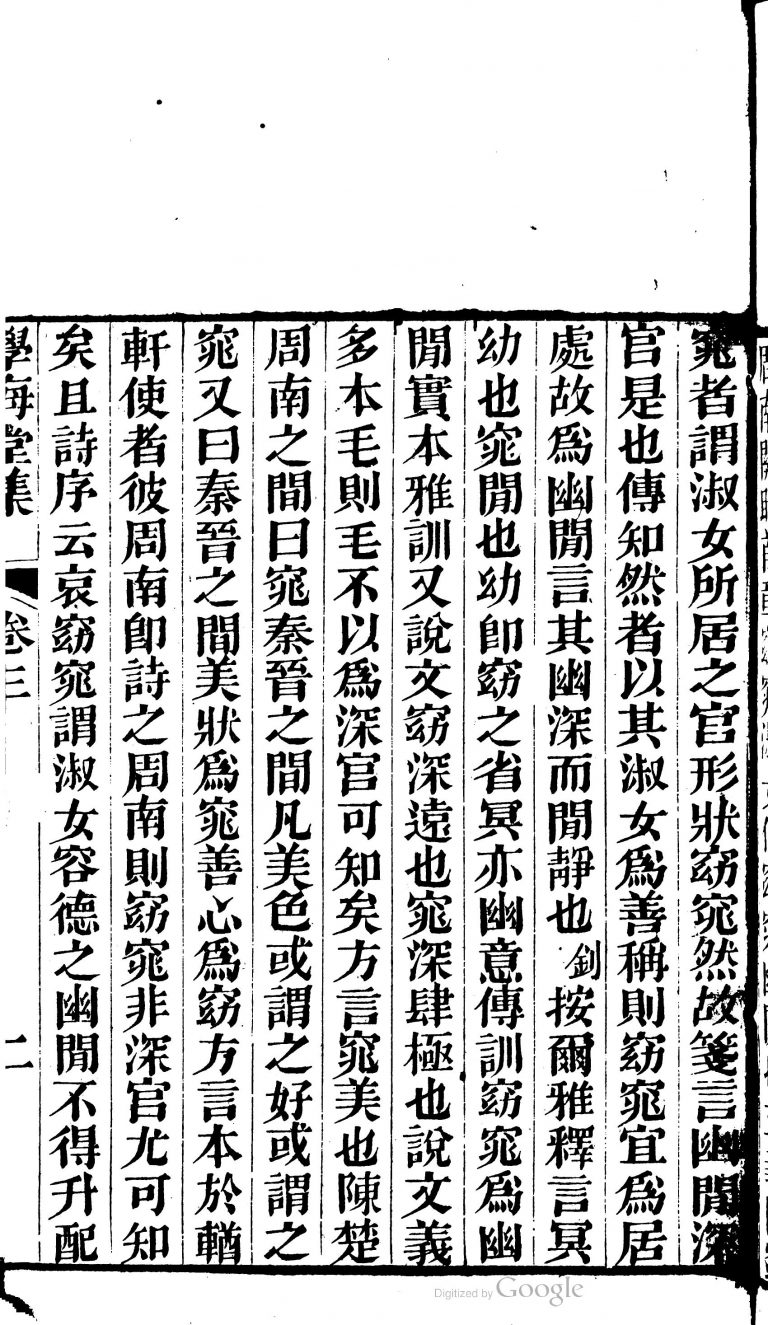 窕者謂淑女所居之官形狀窈窕然故箋言幽閒深
官是也傳知然者以其淑女爲善稱則窈窕宜爲居
處故爲幽閒言其幽深而閒靜也釗按爾雅釋言冥
幼也窕閒也幼卽窈之省冥亦幽意傳訓窈窕爲幽
閒實本雅訓又說文窈深遠也窕深肆極也說文義
多本毛則毛不以爲深官可知矣方言窕美也陳楚
周南之間曰窕秦晉之間凡美色或謂之好或謂之
窕又曰秦晉之間美狀爲窕善心爲窈方言本於輶
軒使者彼周南卽詩之周南則窈窕非深官尤可知
矣且詩序云哀窈窕謂淑女容德之幽閒不得升配
學海堂集 卷三 二
Digitized by Google